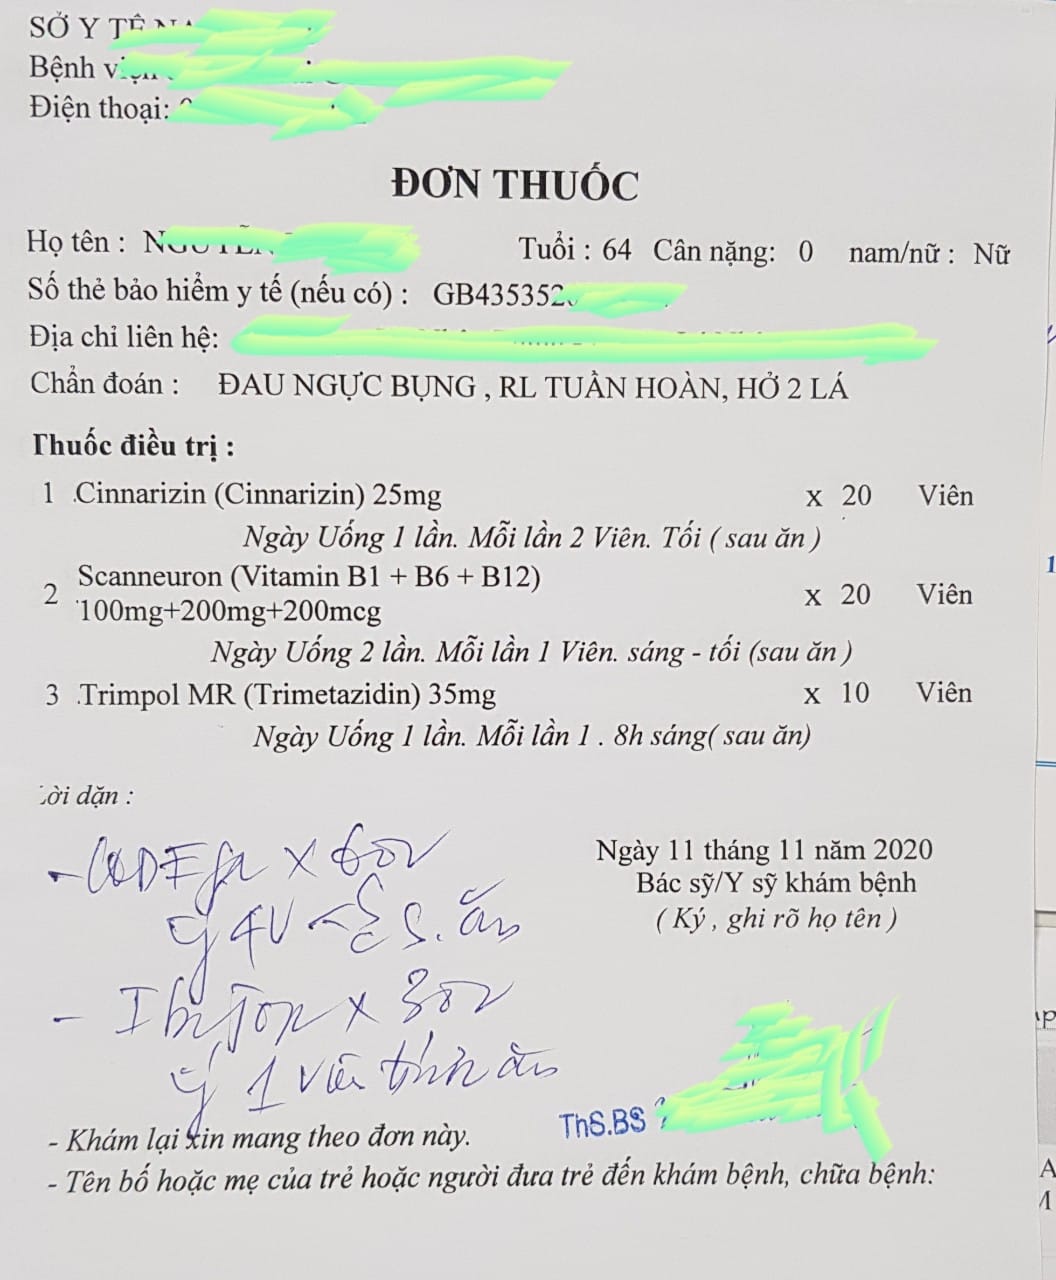 SỞ Y TẾ
Bệnh viện
Điện thoại:
ĐƠN THUỐC
Họ tên : NGUYỄN Tuổi : 64 Cân nặng: 0 nam/nữ : Nữ
Số thẻ bảo hiểm y tế (nếu có) : GB435352
Địa chỉ liên hệ:
Chẩn đoán : ĐAU NGỰC BỤNG , RL TUẦN HOÀN, HỞ 2 LÁ
Thuốc điều trị :
1 Cinnarizin (Cinnarizin) 25mg x 20 Viên
Ngày Uống 1 lần. Mỗi lần 2 Viên. Tối ( sau ăn )
2 Scanneuron (Vitamin B1 + B6 + B12) x 20 Viên
100mg+200mg+200mcg
Ngày Uống 2 lần. Mỗi lần 1 Viên. sáng - tối (sau ăn )
3 Trimpol MR (Trimetazidin) 35mg x 10 Viên
Ngày Uống 1 lần. Mỗi lần 1 . 8h sáng( sau ăn)
Lời dặn :
x 60v
4v S. ăn
x 30v
1 viên ăn
Ngày 11 tháng 11 năm 2020
Bác sỹ/Y sỹ khám bệnh
( Ký , ghi rõ họ tên )
ThS.BS
- Khám lại xin mang theo đơn này.
- Tên bố hoặc mẹ của trẻ hoặc người đưa trẻ đến khám bệnh, chữa bệnh: